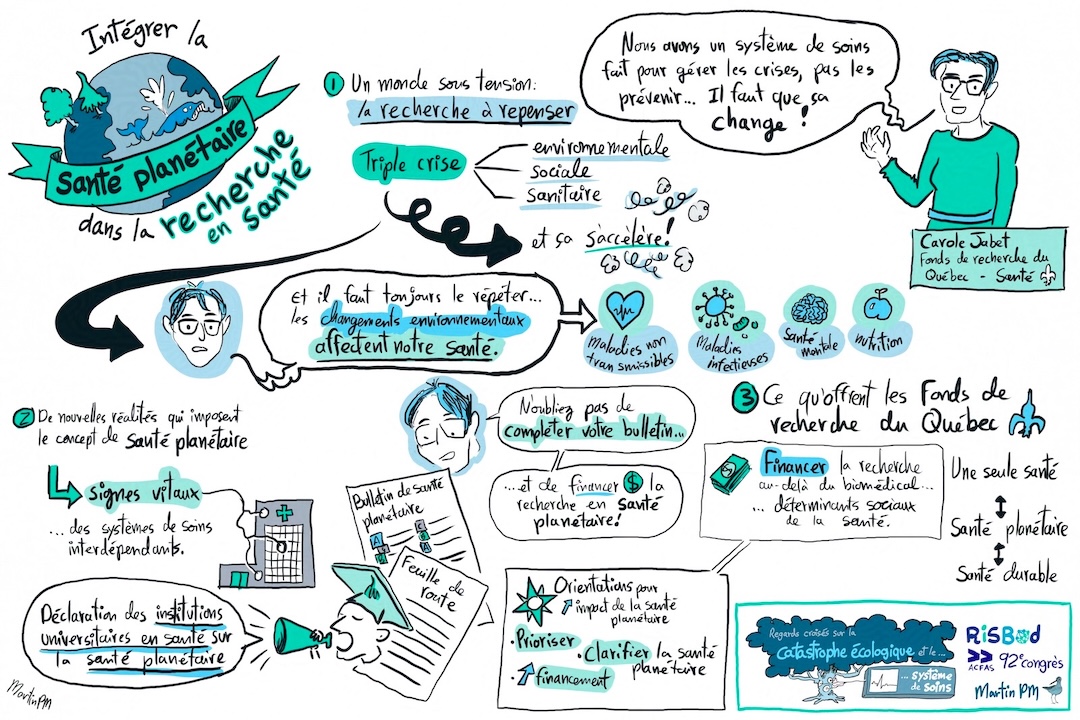 Intégrer la
santé planétaire
dans la recherche
en santé
1 Un monde sous tension:
la recherche à repenser
Triple crise
environnementale
sociale
sanitaire
et sa s'accélère!
Nous avons un système de soins
fait pour gérer les crises, pas les
prévenir... Il faut que sa
change !
Carole Jabet
Fonds de recherche du
Québec - Santé
Et il faut toujours le répéter...
les changements environnementaux
affectent notre santé.
maladies non
transmissibles
Maladies
infectieuses
Santé
mentale
nutrition
2 De nouvelles réalités qui imposent
le concept de santé planétaire
signes vitaux
... des systèmes de soins
interdépendants.
Déclaration des institutions
universitaires en santé sur
la santé planétaire
Bulletin de santé
planétaire
A
B
C
Feuille de
route
N'oubliez pas de
compléter votre bulletin...
...et de financer $ la
recherche en santé
planétaire!
3 Ce qu'offrent les Fonds de
recherche du Québec
Financer la recherche
au-delà du biomédical...
... déterminants sociaux
de la santé.
Une seule santé
Santé planétaire
Santé durable
Orientations pour
impact de la santé
planétaire
• Prioriser
• clarifier la santé
planétaire
• financement
Regards croisés sur la
catastrophe écologique et le...
... système
de soins
RiSBOd
ACFAS 92e congrès
Martin PM
Martin PM